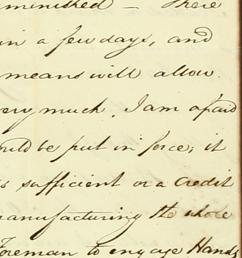 minished - There
in a few days, and
means will allow.
very much. I am afraid
ould be put in force; it
is sufficient or a Credit
manufacturing the whole
Foreman to engage Hands